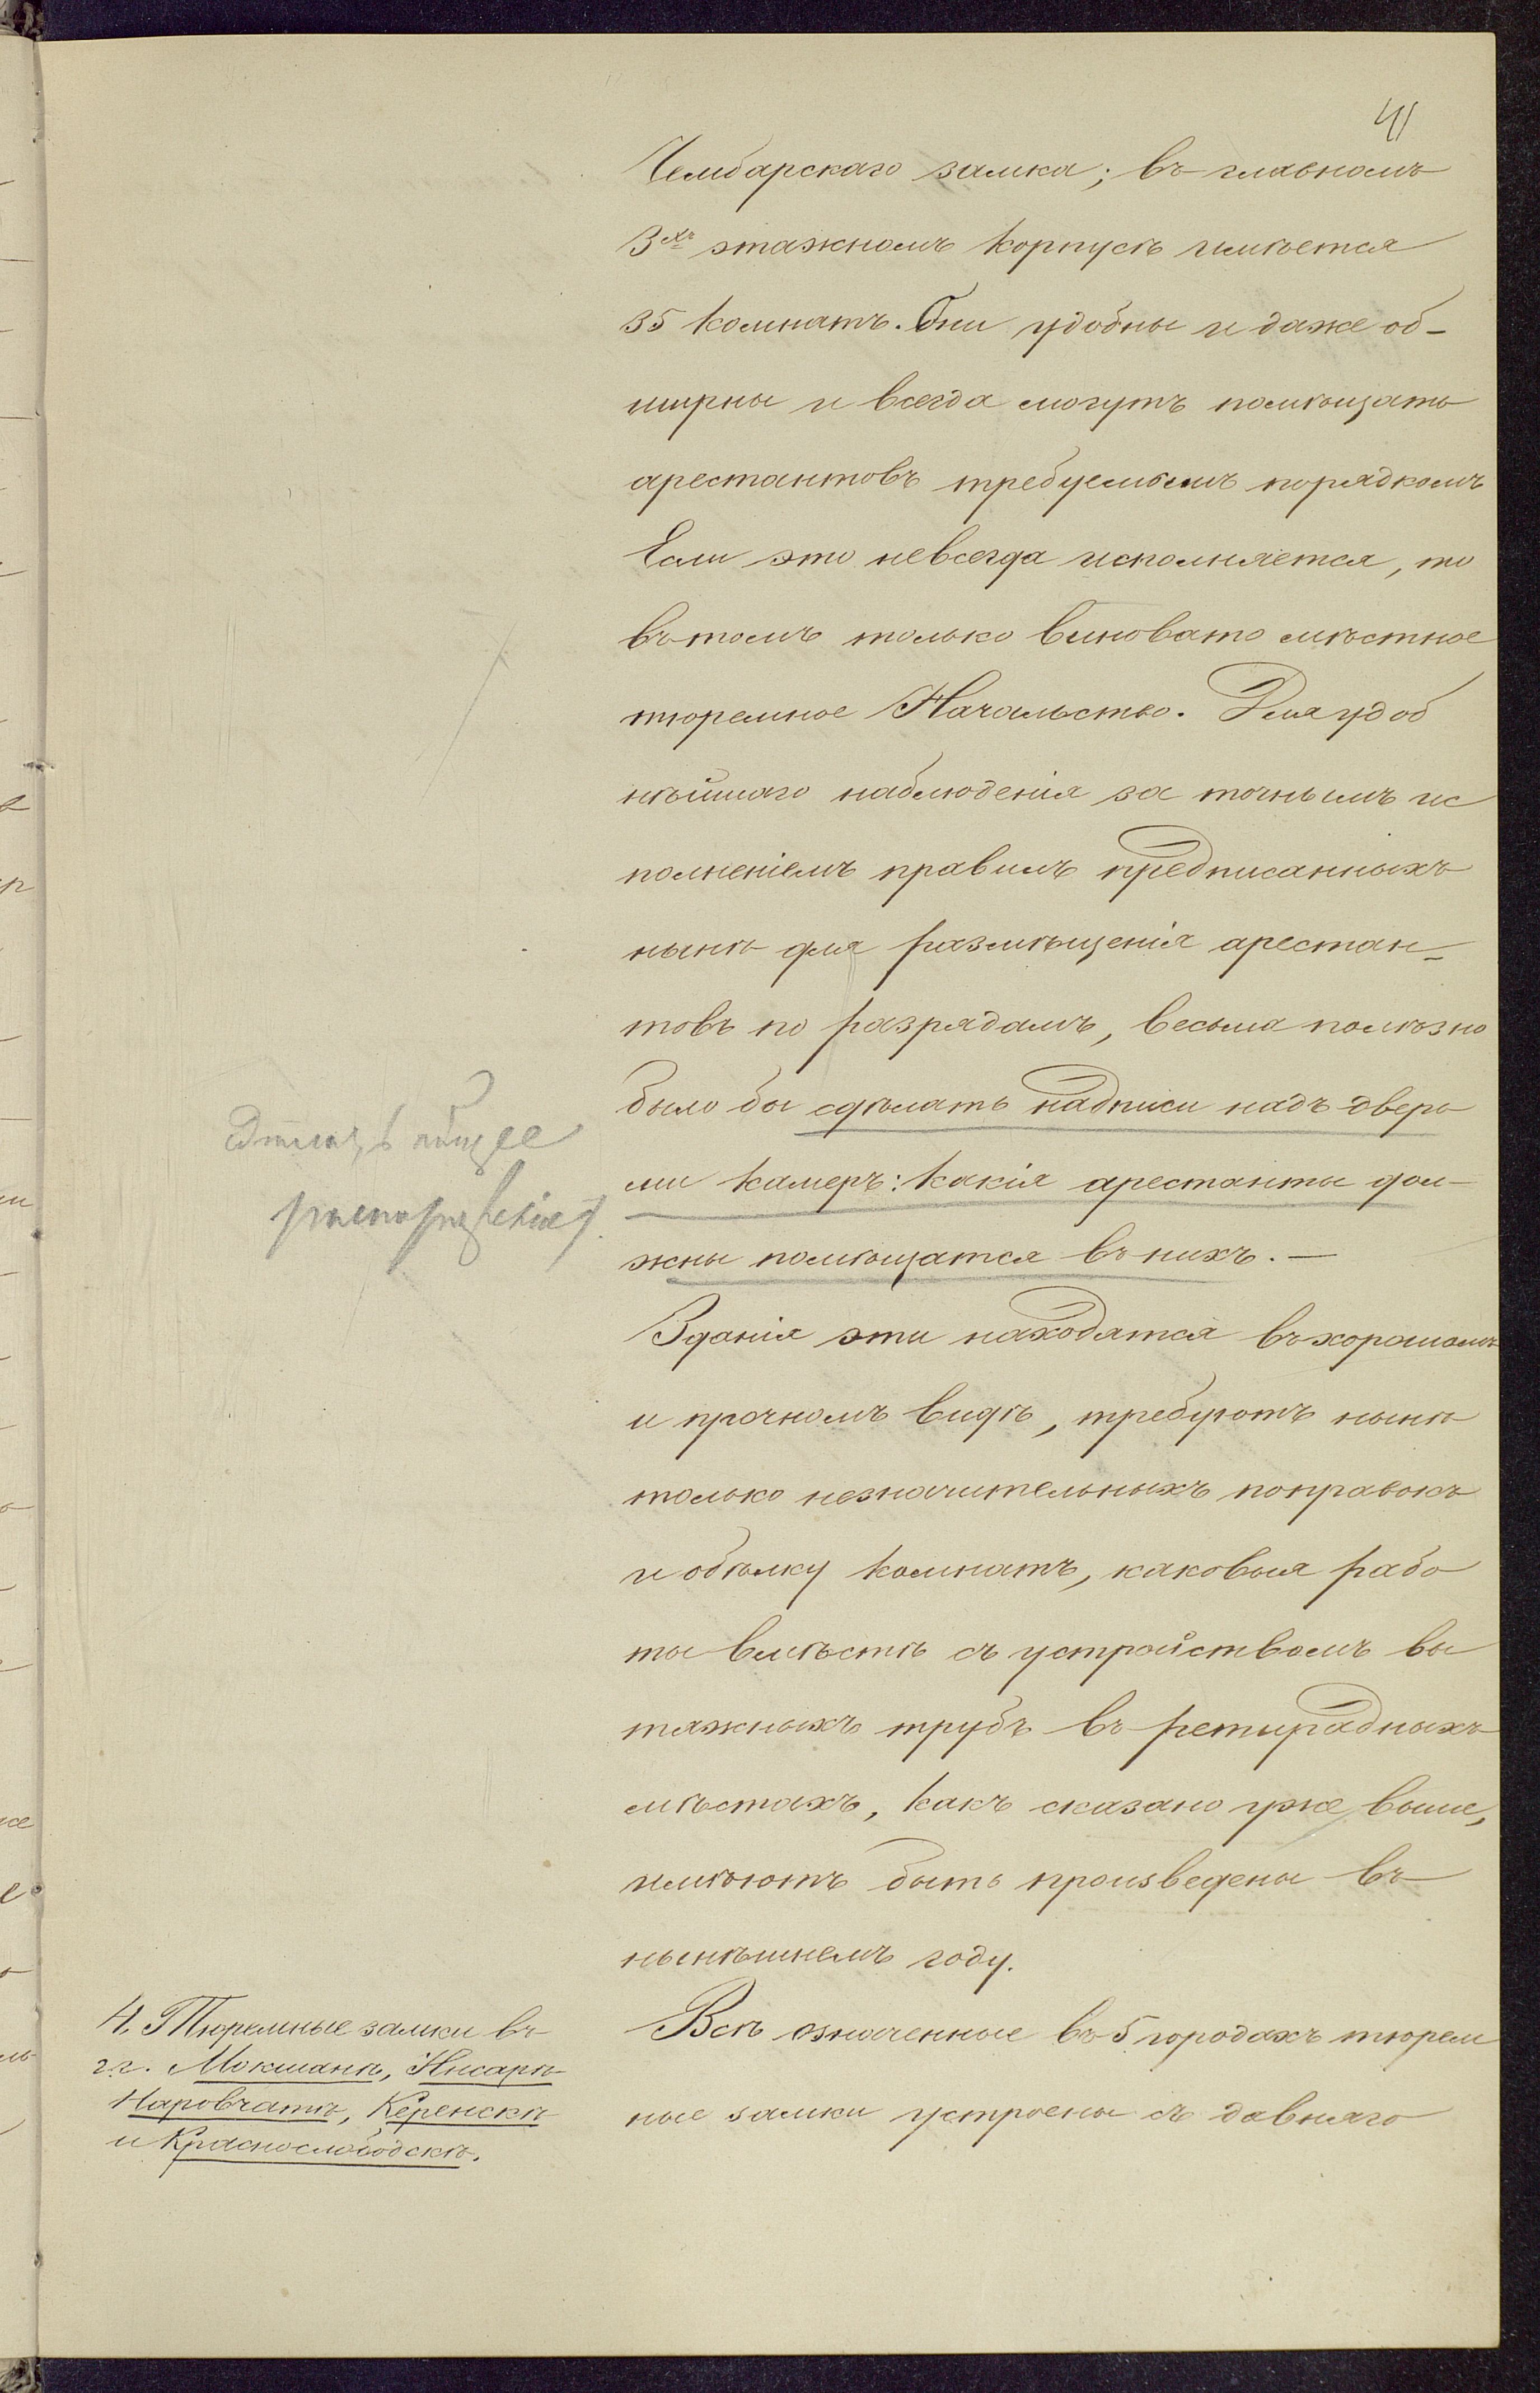 41
Чембарскаго замка; въ главномъ
3хъ этажномъ корпусѣ имѣется
35 комнатъ. Они удобны и даже об-
ширны и всегда могутъ помѣщать
арестантовъ требуемымъ порядкомъ
Если это невсегда исполняется, то
въ томъ только виновато мѣстное
тюремное Начальство. Для удоб
нѣйшаго наблюденія за точнымъ ис
полненіемъ правилъ предписанныхъ
нынѣ для размѣщенія арестан-
товъ по разрядамъ, весьма полѣзно
было бы сдѣлать надписи надъ дверь
ми камеръ: какія арестанты дол-
жны помѣщатся въ нихъ. —
Зданія эти находятся въ хорошомъ
и прочномъ видѣ, требуютъ нынѣ
только незначительныхъ поправокъ
и обѣлку комнатъ, каковыя рабо
ты вмѣстѣ съ устройствомъ вы
тяжныхъ трубъ въ ретирадныхъ
мѣстахъ, какъ сказано уже выше,
имѣютъ быть произведены въ
нынѣшнемъ году.
4. Тюремные замки въ
г.г. Мокшанѣ, Инсарѣ
Наровчатѣ, Керенскѣ
и Краснослободскѣ.
Всѣ означенные въ 5 городахъ тюрем
ные замки устроены съ давняго